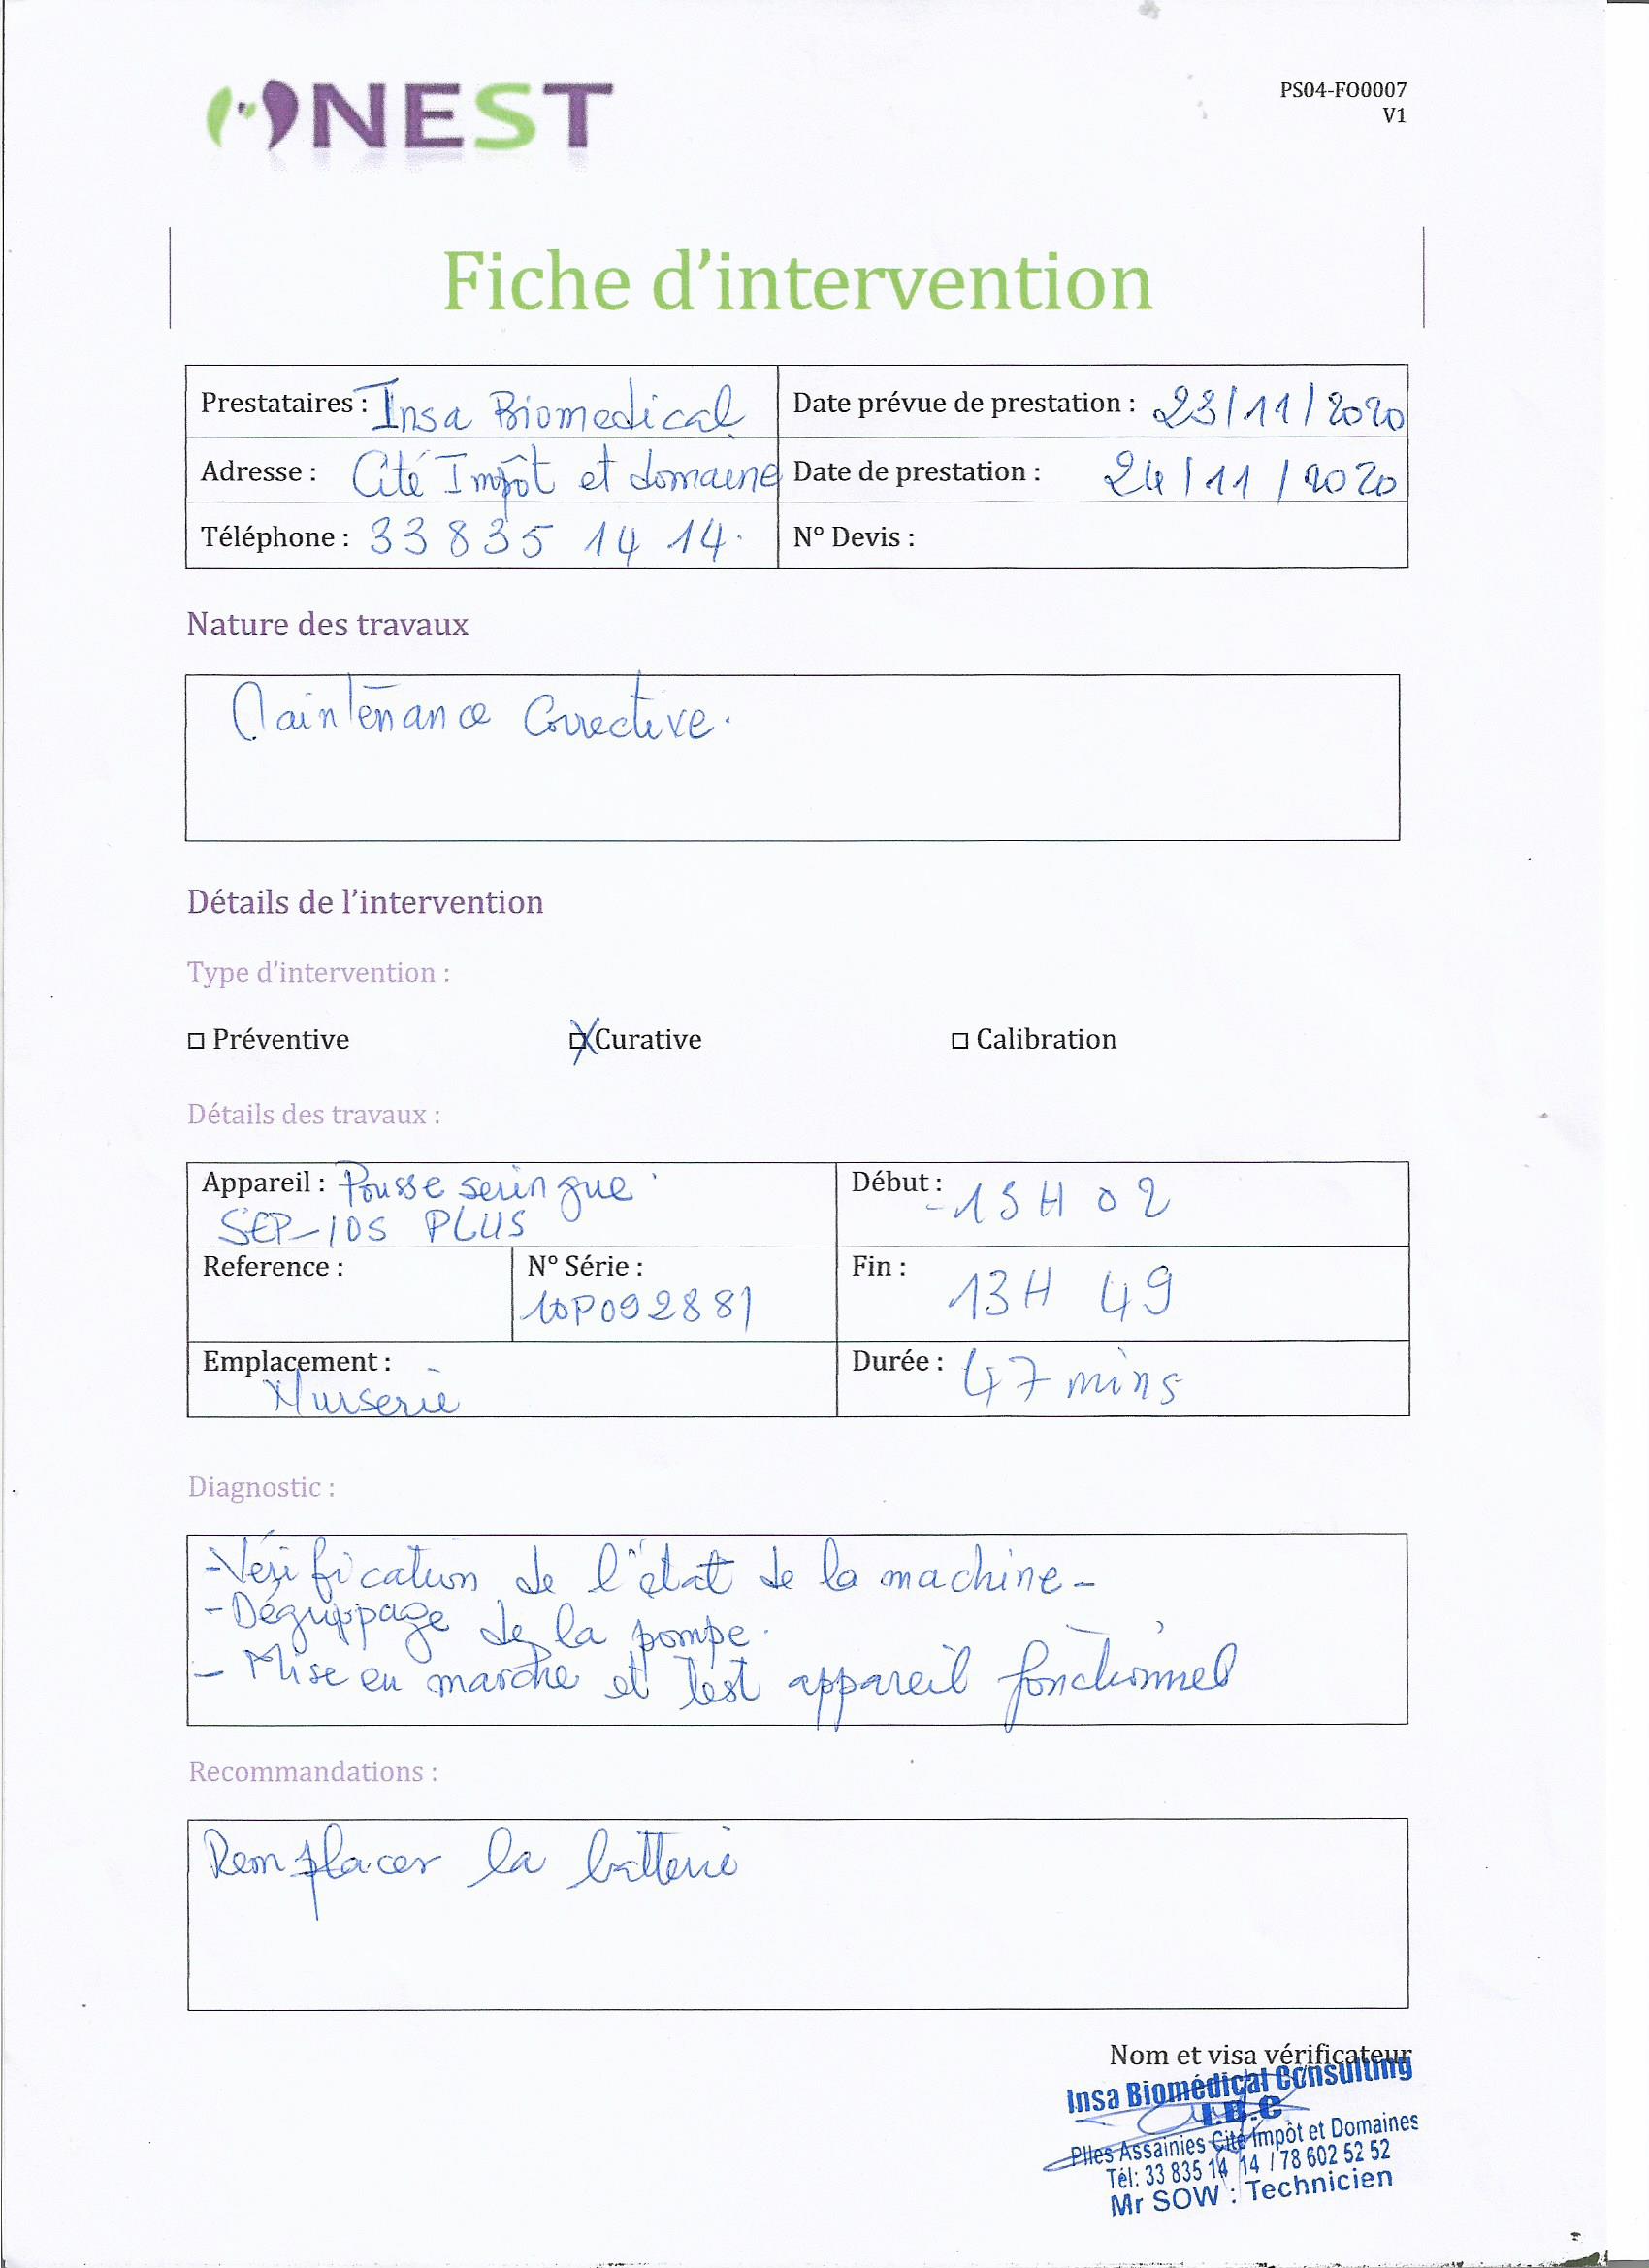 NEST
PS04-FO0007
V1
Fiche d'intervention
Prestataires : Insa Biomedical
Date prévue de prestation : 23/11/2020
Adresse : Cité Impôt et domaine
Date de prestation : 24/11/2020
Téléphone : 33 835 14 14.
N° Devis :
Nature des travaux
Maintenance Corrective.
Détails de l'intervention
Type d'intervention :
□ Préventive
☒ Curative
□ Calibration
Détails des travaux :
Appareil : Pousse seringue
SEP-10S PLUS
Début : 13H 02
Reference :
N° Série :
10P092881
Fin : 13H 49
Emplacement :
Nurserie
Durée : 47 mins
Diagnostic :
- Vérification de l'état de la machine -
- Dégrippage de la pompe.
- Mise en marche et test appareil fonctionnel
Recommandations :
Remplacer la batterie
Nom et visa vérificateur
Insa Biomédical Consulting
I.B.C
Plles Assainies Cité Impôt et Domaines
Tél: 33 835 14 14 / 78 602 52 52
Mr SOW : Technicien